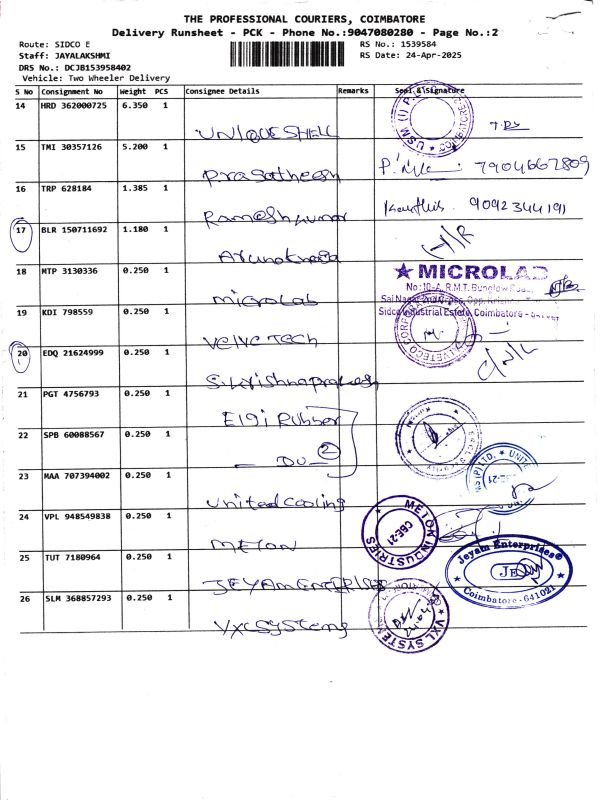 THE PROFESSIONAL COURIERS, COIMBATORE
Delivery Runsheet - PCK - Phone No.:9047080280 - Page No.:2
Route: SIDCO E
RS No.: 1539584
Staff: JAYALAKSHMI
RS Date: 24-Apr-2025
DRS No.: DCJB153958402
Vehicle: Two Wheeler Delivery
S No Consignment No Weight PCS Consignee Details Remarks Seal & Signature
14 HRD 362000725 6.350 1
UNIQUE SHELL
USM (I) P
15 TMI 30357126 5.200 1
Prasatheesh
7904667809
16 TRP 628184 1.385 1
Rameshkumar
9092344191
17 BLR 150711692 1.180 1
Arunothasa
18 MTP 3130336 0.250 1
microLab
★ MICROLAB
No:10-A, R.M.T. Bunglow Road,
Sai Nagar 2nd Cross, Opp.
Sidco Industrial Estate, Coimbatore -
19 KDI 798559 0.250 1
Velve Tech
20 EDQ 21624999 0.250 1
Silkrishnaprakash
C/N/L
21 PGT 4756793 0.250 1
Elgi Rubber
22 SPB 60088567 0.250 1
- DU - 2
23 MAA 707394002 0.250 1
United cooling
(P) LTD. ★ UNITE
24 VPL 948549838 0.250 1
METON
METON INDUSTRIES
CBE-21
25 TUT 7180964 0.250 1
JEYAM ENTERPRISES
Jeyam Enterprises®
JE
Coimbatore - 641021
26 SLM 368857293 0.250 1
VXL Systems
VXL SYSTEM